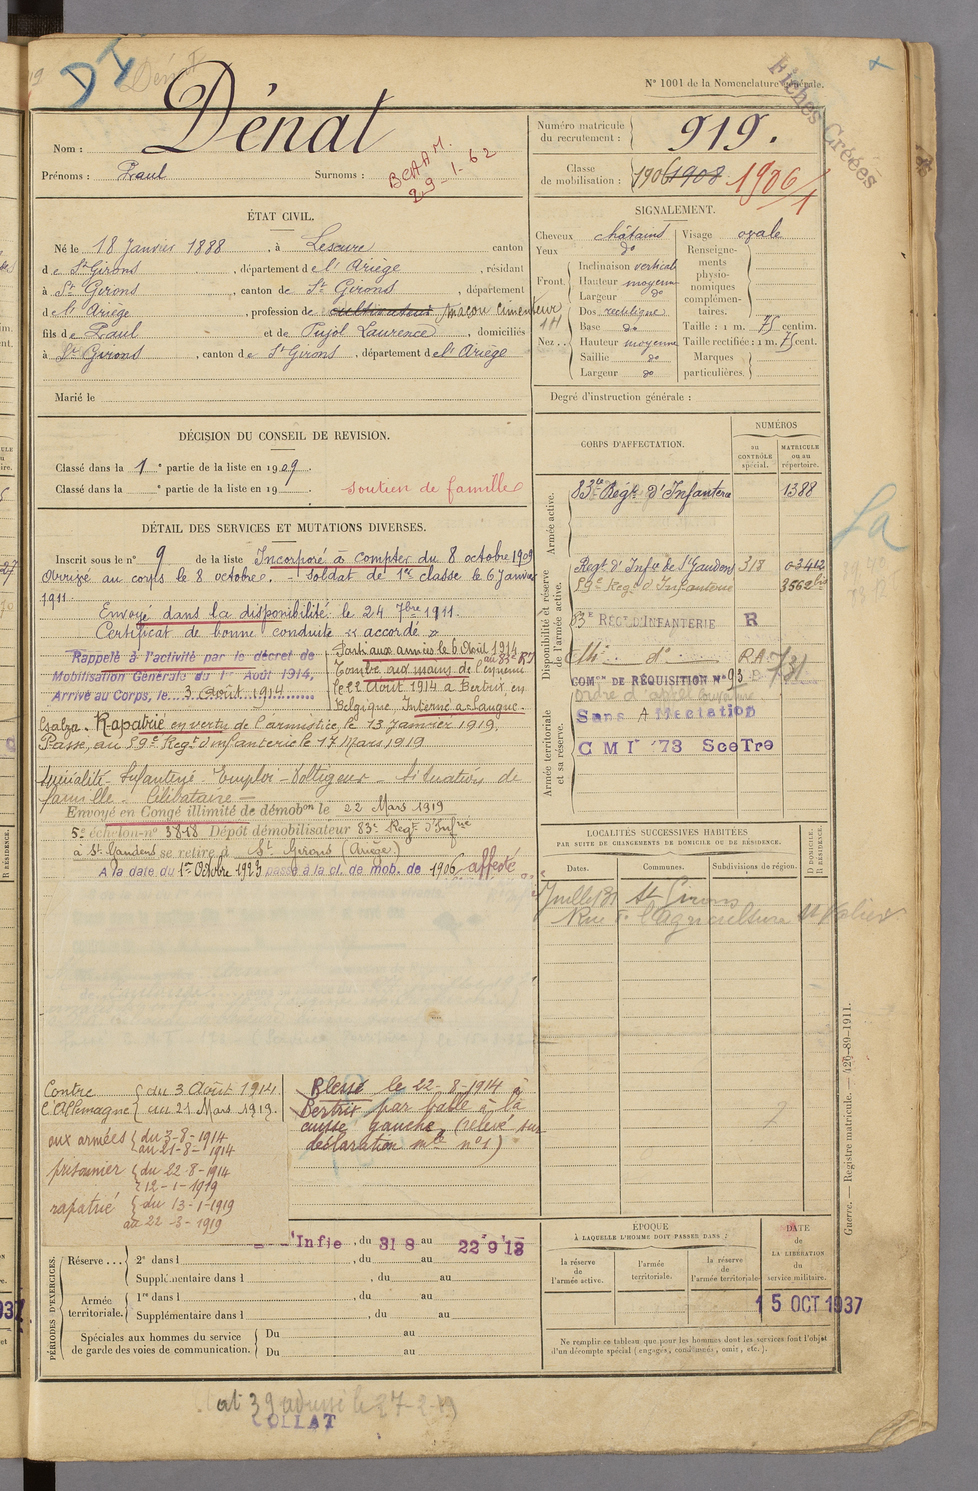 N° 1001 de la Nomenclature générale.
Fiches Créées
Dénat
Nom :
Prénoms : Paul Surnoms :
BCAAM.
29-1-62
Numéro matricule du recrutement : 919.
Classe de mobilisation : 1906 1908 1906/1
ÉTAT CIVIL.
Né le 18 Janvier 1888, à Lescure canton
de St Girons, département de l'Ariège, résidant
à St Girons, canton de St Girons, département
de l'Ariège, profession de cultivateur maçon cimenteur
fils de Paul et de Pujol Laurence, domiciliés
à St Girons, canton de St Girons, département de l'Ariège
Marié le
SIGNALEMENT.
Cheveux châtains
Yeux do
Front. Inclinaison vertical
Hauteur moyenne
Largeur do
Nez. Dos rectiligne
Base do
Hauteur moyenne
Saillie do
Largeur do
Visage ovale
Renseignements physionomiques complémentaires.
Taille : 1 m. 75 centim.
Taille rectifiée : 1 m. 75 cent.
Marques particulières.
Degré d'instruction générale :
DÉCISION DU CONSEIL DE REVISION.
Classé dans la 1e partie de la liste en 1909.
Classé dans la e partie de la liste en 19 soutien de famille
DÉTAIL DES SERVICES ET MUTATIONS DIVERSES.
Inscrit sous le n° 9 de la liste Incorporé à compter du 8 octobre 1909
Arrivé au corps le 8 octobre. - Soldat de 1re classe le 6 Janvier
1911.
Envoyé dans la disponibilité le 24 7bre 1911.
Certificat de bonne conduite « accordé »
Rappelé à l'activité par le décret de
Mobilisation Générale du 1er Août 1914,
Arrivé au Corps, le 3 Août 1914
Parti aux armées le 6 Août 1914
au 83e RI
Tombé aux mains de l'ennemi
le 22 Août 1914 à Bertrix, en
Belgique. Interné à Langue-
Salza. Rapatrié en vertu de l'armistice, le 13 Janvier 1919.
Passé au 59e Regt d'infanterie le 17 Mars 1919
Spécialité - Infanterie - Emploi - Voltigeur - Situation de
famille - Célibataire -
Envoyé en Congé illimité de démobon le 22 Mars 1919
5e échelon n° 3818 Dépôt démobilisateur 83e Regt d'Infrie
à St Gaudens se retire à St Girons (Ariège)
A la date du 1er Octobre 1923 passé à la cl. de mob. de 1906 affecté
CORPS D'AFFECTATION.
NUMÉROS
au CONTRÔLE spécial.
MATRICULE ou au répertoire.
Armée active.
83e Regt d'Infanterie 1388
Disponibilité et réserve de l'armée active.
Regt d'Infie de St Gaudens 318 03412
59e Regt d'Infanterie 3562 bis
83E REGT D'INFANTERIE R
COMon DE RÉQUISITION N° 93
731
Armée territoriale et sa réserve.
Sans Affectation
C M I 73 SceTre
LOCALITÉS SUCCESSIVES HABITÉES
PAR SUITE DE CHANGEMENTS DE DOMICILE OU DE RÉSIDENCE.
Dates. Communes. Subdivisions de région. D. DOMICILE. R. RÉSIDENCE.
Juillet 31 St Girons
Rue de l'Agriculture St Valier
Contre l'Allemagne du 3 Août 1914
au 21 Mars 1919.
aux armées du 3-8-1914
au 21-8-1914
prisonnier du 22-8-1914
12-1-1919
rapatrié du 13-1-1919
au 22-3-1919
Blessé le 22-8-1914 à
Bertrix par balle à la
cuisse gauche (relevé sur
déclaration mle n° 1)
PÉRIODES D'EXERCICES.
Infie, du 31 8 au 22 9 13
Réserve... 2e dans l , du au
Supplémentaire dans l , du au
Armée territoriale. 1re dans l , du au
Supplémentaire dans l , du au
Spéciales aux hommes du service de garde des voies de communication. Du au
Du au
EPOQUE
À LAQUELLE L'HOMME DOIT PASSER DANS :
la réserve de l'armée active.
l'armée territoriale.
la réserve de l'armée territoriale
DATE de LA LIBÉRATION du service militaire.
15 OCT 1937
Ne remplir ce tableau que pour les hommes dont les services font l'objet
d'un décompte spécial (engagés, condamnés, omis, etc.).
Guerre. — Registre matricule. — 429-89-1911.
at 39 adressé le 27-2-
COLLAT